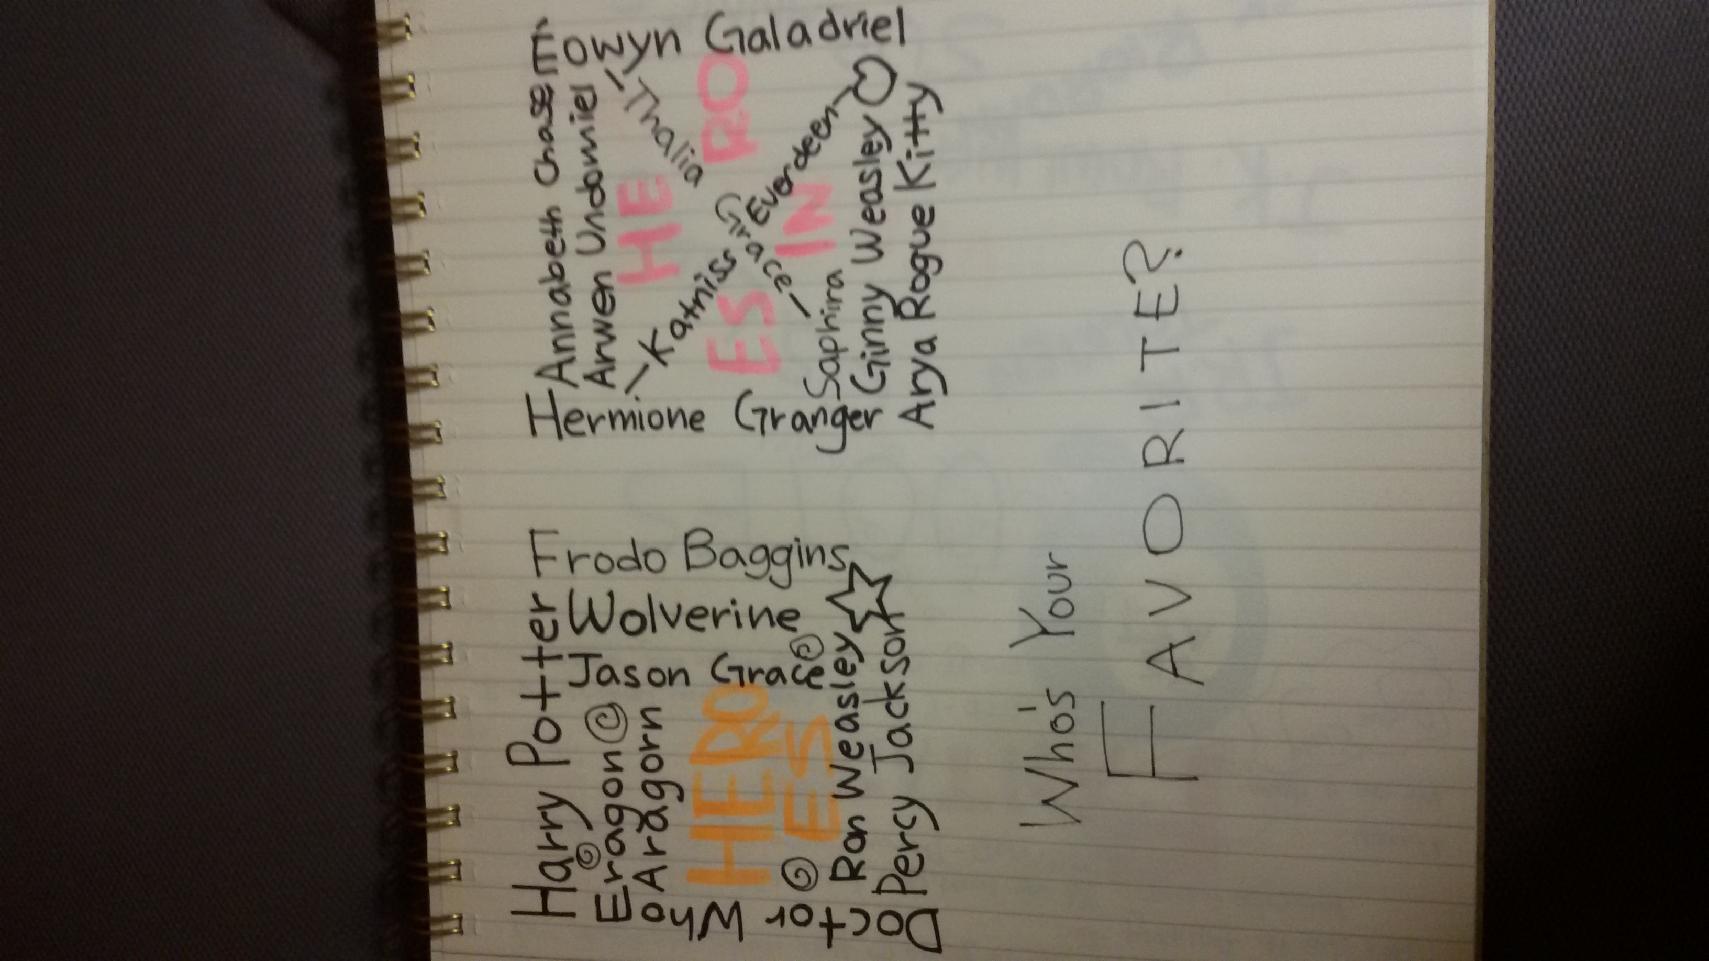 Harry Potter
Eragon
Aragorn
HERO
ES
Ron Weasley
Percy Jackson
Doctor Who
Jason Grace
Wolverine
Frodo Baggins
Annabeth Chase
Arwen Undomiel
HE RO
ES IN
Saphira
Ginny Weasley
Arya Rogue Kitty
Hermione Granger
Katniss Everdeen
Thalia Grace
Eowyn Galadriel
Who's Your
FAVORITE?